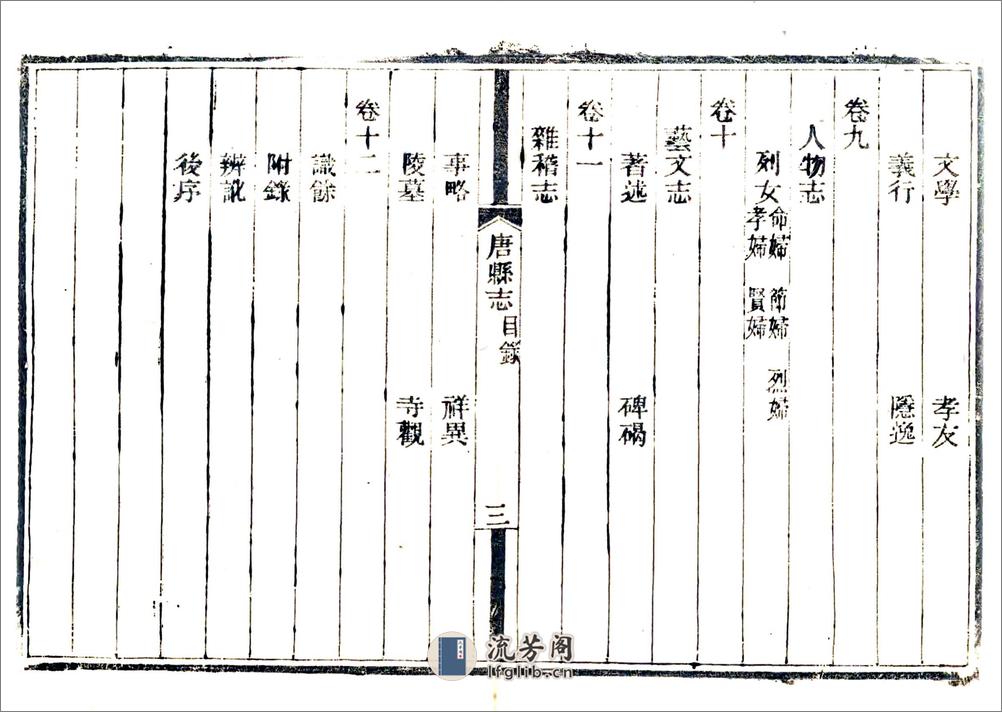 文學 孝友
義行 隱逸
卷九
人物志
列女 命婦 節婦 烈婦
孝婦 賢婦
卷十
藝文志
著述 碑碣
卷十一
雜稽志
唐縣志 目錄 三
事略 祥異
陵墓 寺觀
卷十二
識餘
附錄
辨訛
後序
流芳阁
lfglib.cn